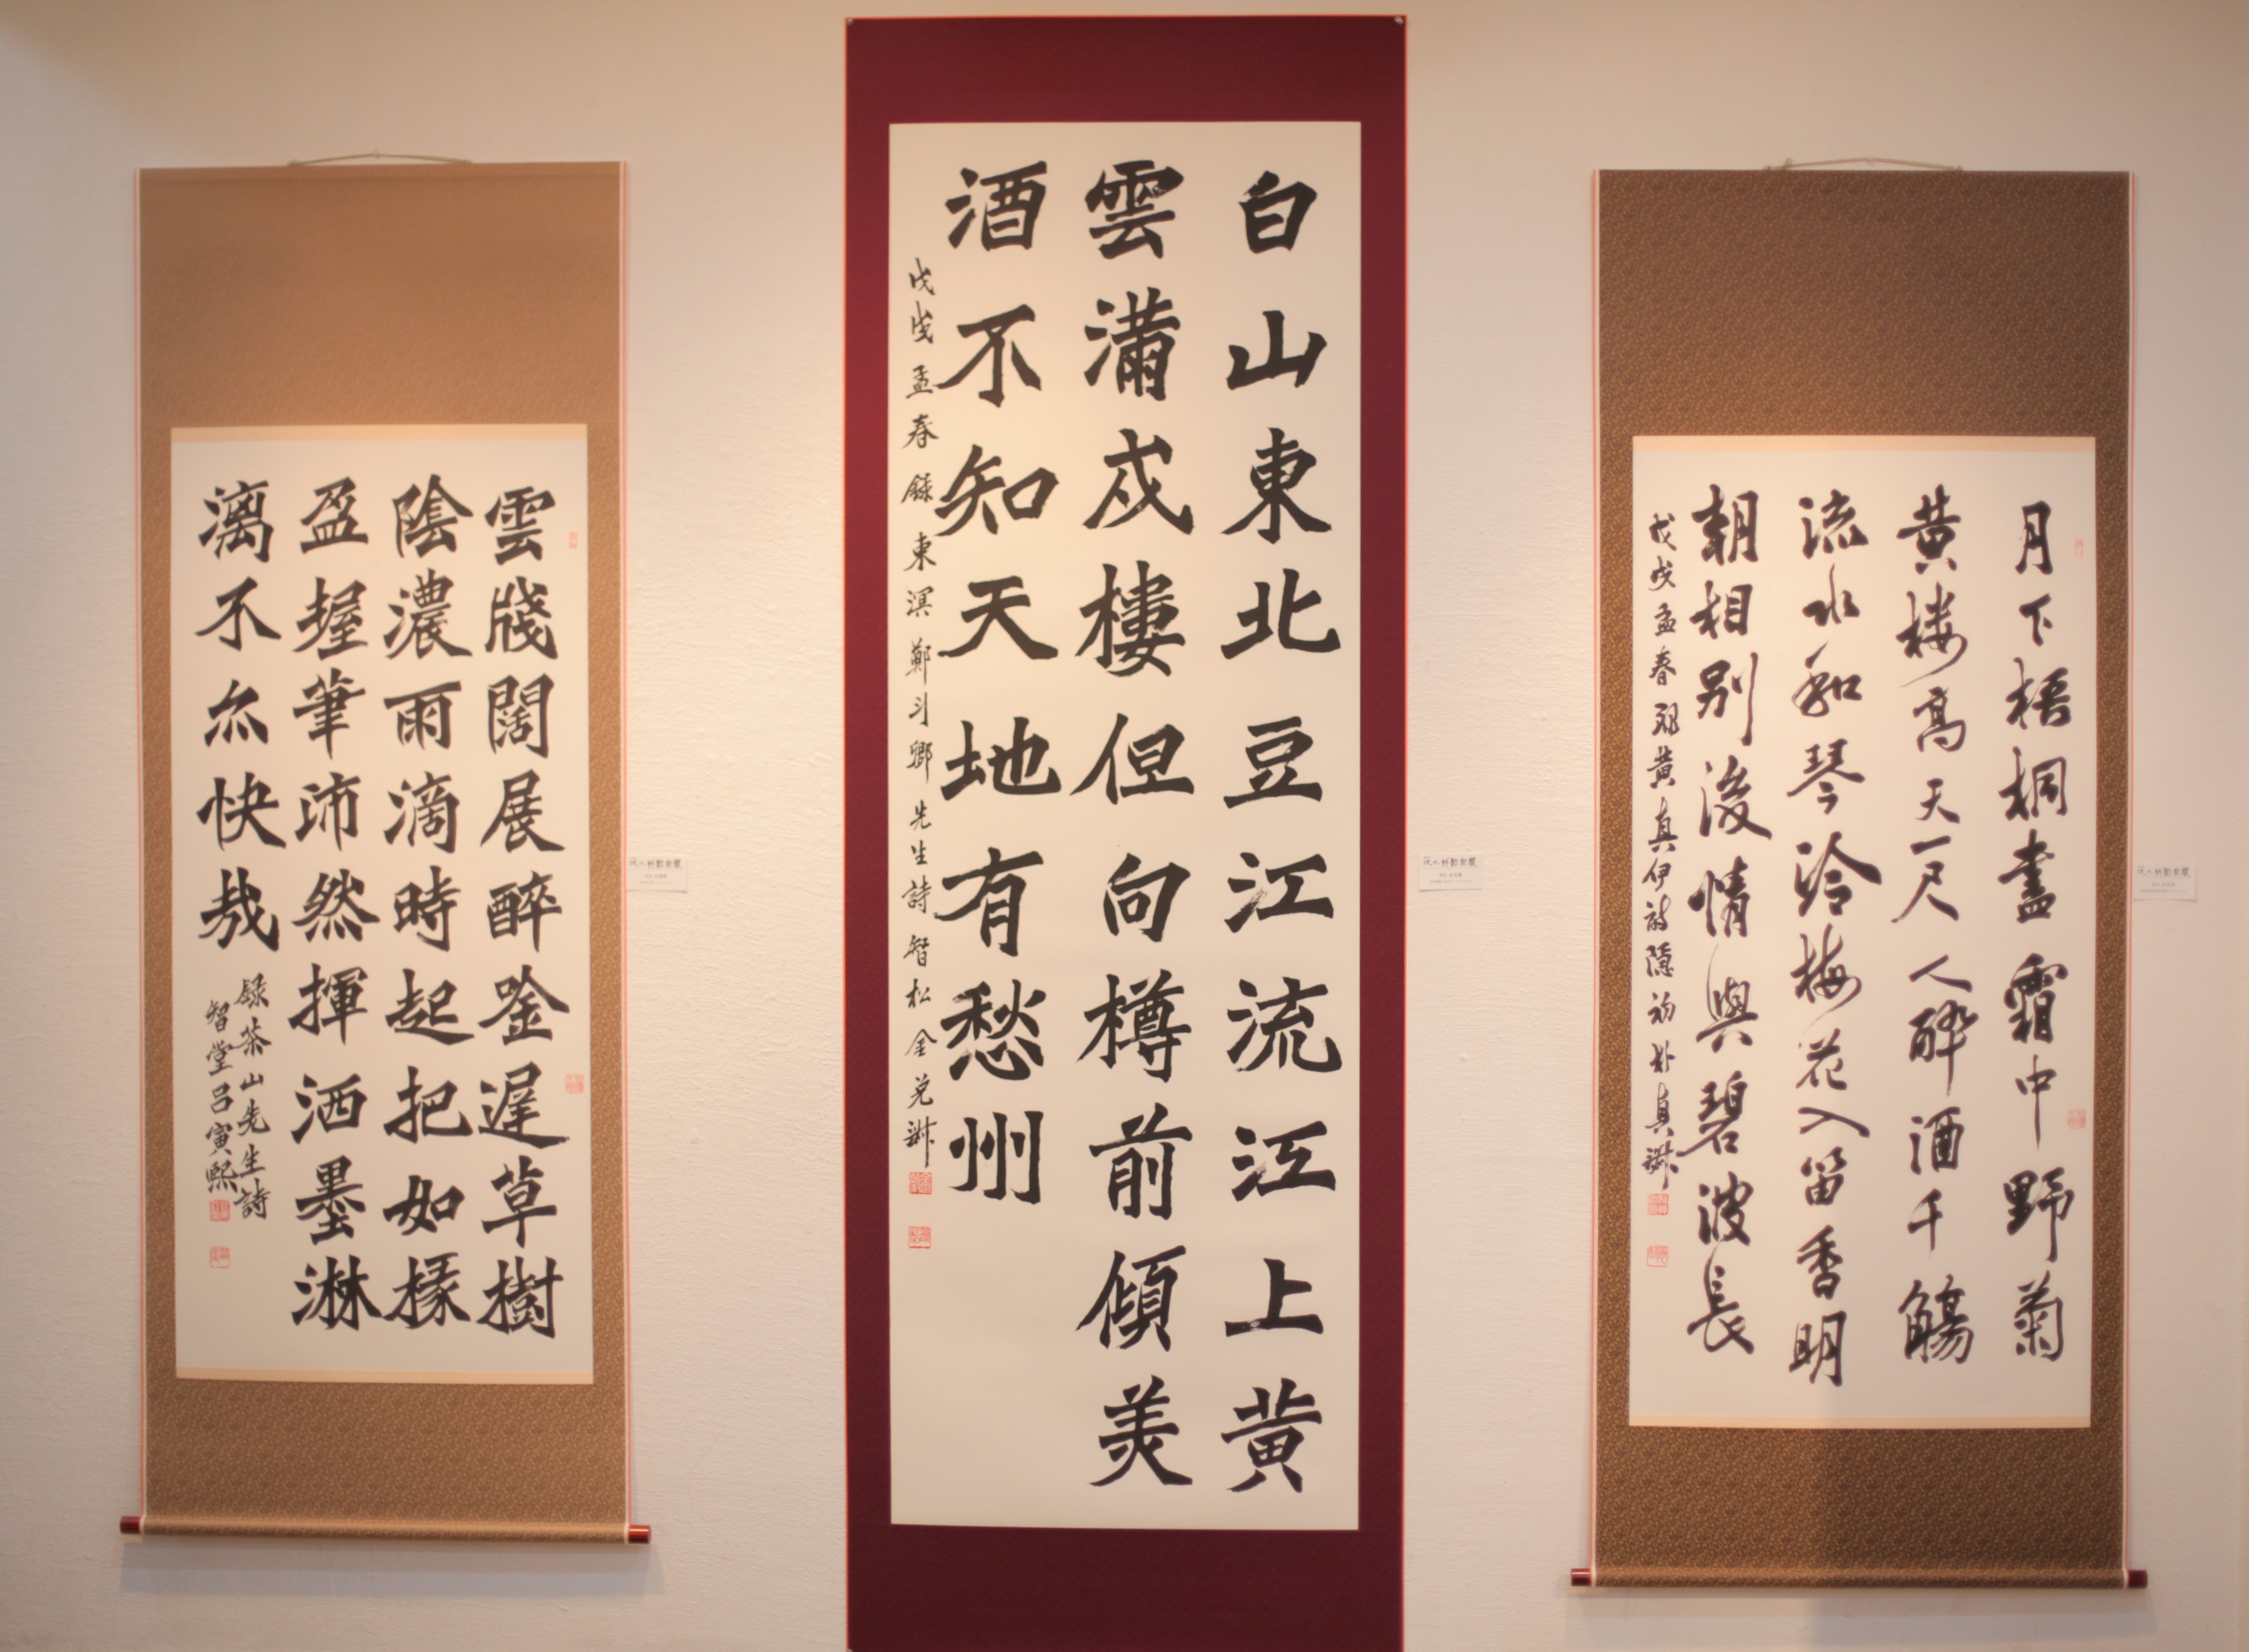 月下梧桐盡霜中野菊
黄楼高天一尺人醉酒千觴
流水和琴冷梅花入笛香明
朝相別後情與碧波長
戊戌孟春録黄真伊詩朴真
白山東北豆江流江上黄
雲滿戍樓但向樽前傾美
酒不知天地有愁州
戊戌孟春録東溟鄭斗卿先生詩智松金兌
雲牋闊展醉唫遲草樹
陰濃雨滴時起把如椽
盈握筆沛然揮洒墨淋
漓不亦快哉
録茶山先生詩
智堂呂寅熙